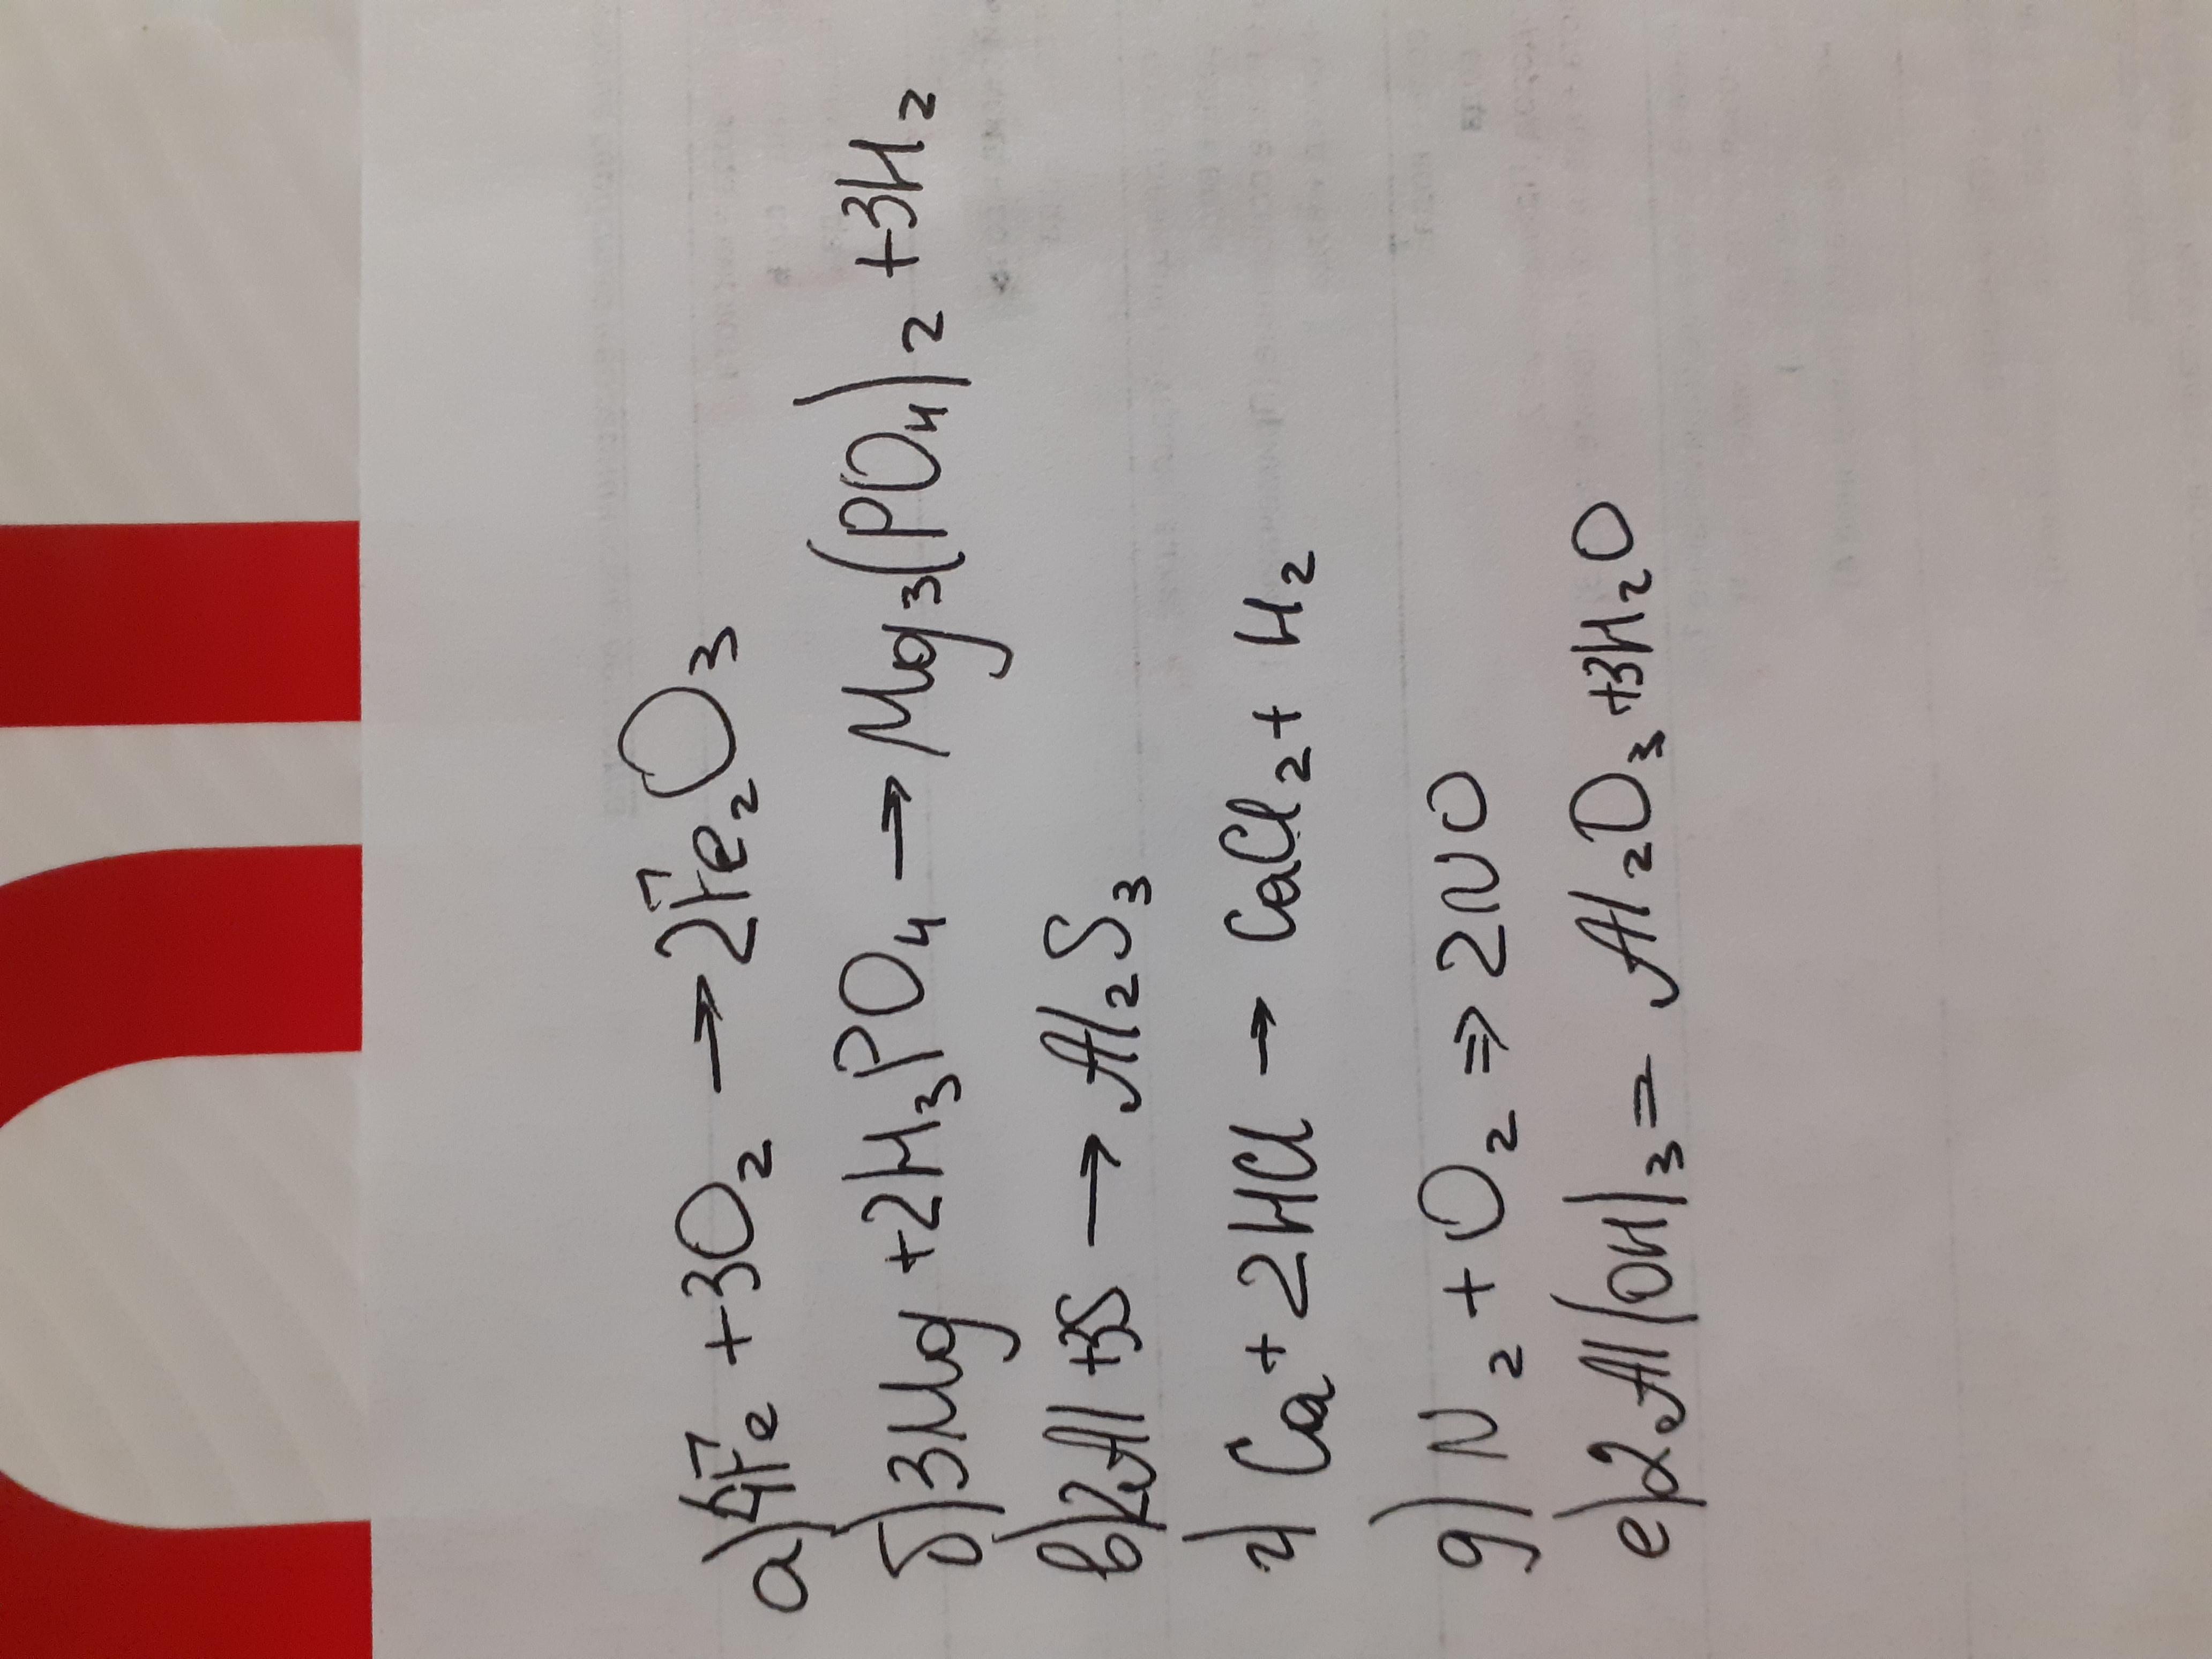 а) 4Fe + 3O₂ → 2Fe₂O₃
б) 3Mg + 2H₃PO₄ → Mg₃(PO₄)₂ + 3H₂
в) 2Al + 3S → Al₂S₃
г) Ca + 2HCl → CaCl₂ + H₂
д) N₂ + O₂ ⇒ 2NO
е) 2Al(OH)₃ = Al₂O₃ + 3H₂O